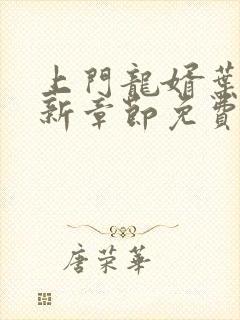 上門龍婿葉
新章節免費
唐荣華